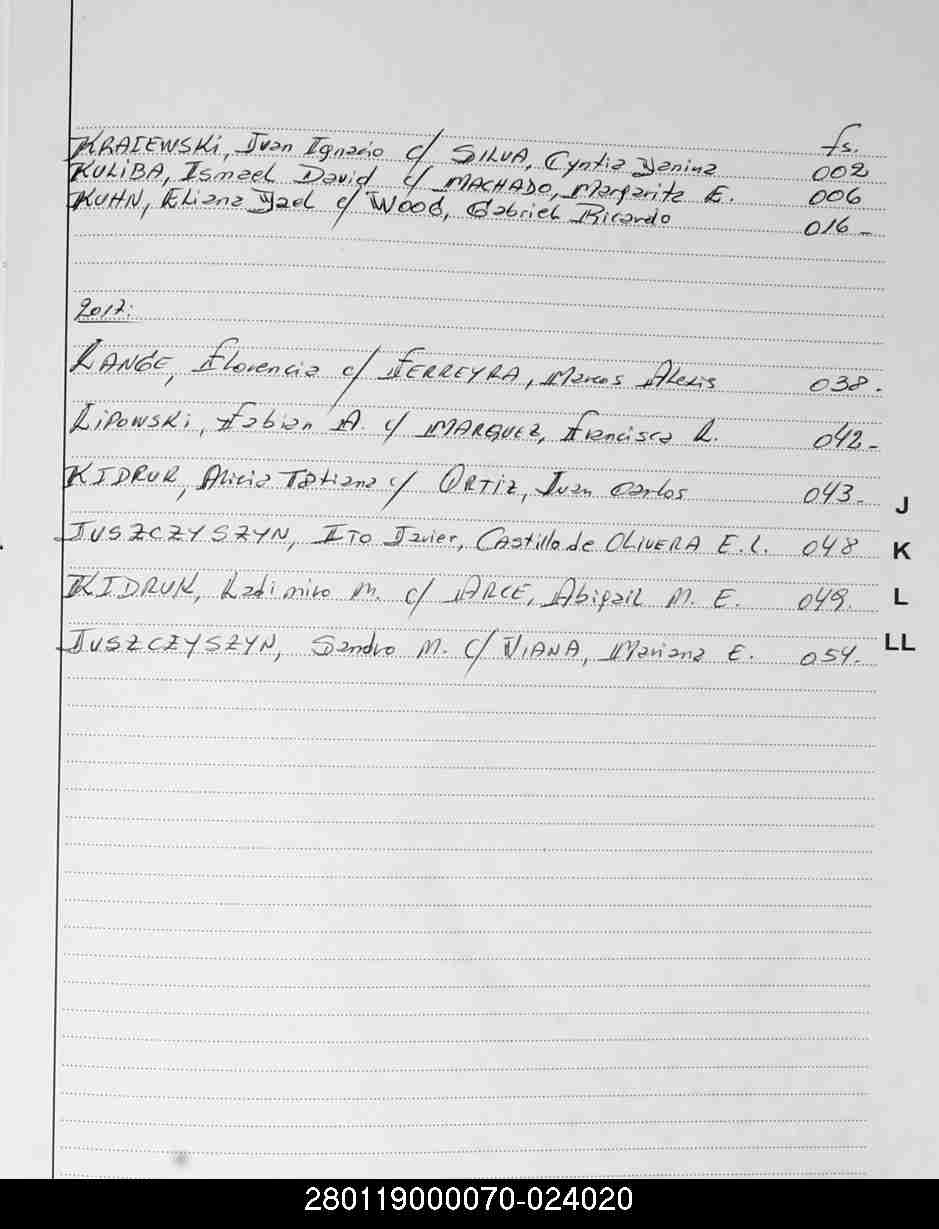 fs.
KRAIEWSKi, Ivan Ignacio c/ SILVA, Cyntia Yanina 002
KULiBA, Ismael David c/ MACHADO, Margarita E. 006
KUHN, Eliana Yael c/ WOOD, Gabriel Ricardo 016-
2017:
LANGE, Florencia c/ FERREYRA, Marcos Alexis 038.
LiPOWSKi, Fabian A. c/ MARQUEZ, Francisca R. 042-
KIDRUK, Alicia Tatiana c/ ORTiZ, Juan Carlos 043-
JUSZCZYSZYN, ITO Javier, CAStillo de OLIVERA E.L. 048
KIDRUK, Ladimiro M. c/ ARCE, Abigail M. E. 049.
JUSZCZYSZYN, Sandro M. c/ VIANA, Mariana E. 054.
J
K
L
LL
280119000070-024020